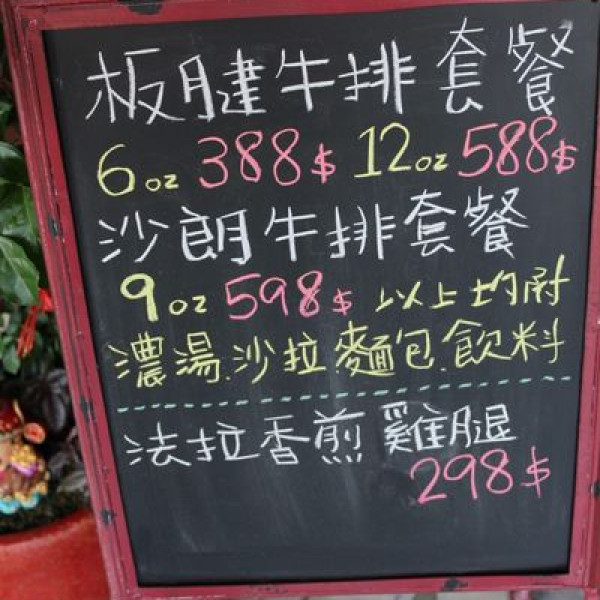 板腱牛排套餐
6oz 388$ 12oz 588$
沙朗牛排套餐
9oz 598$ 以上均附
濃湯.沙拉麵包.飲料
法拉香煎雞腿
298$